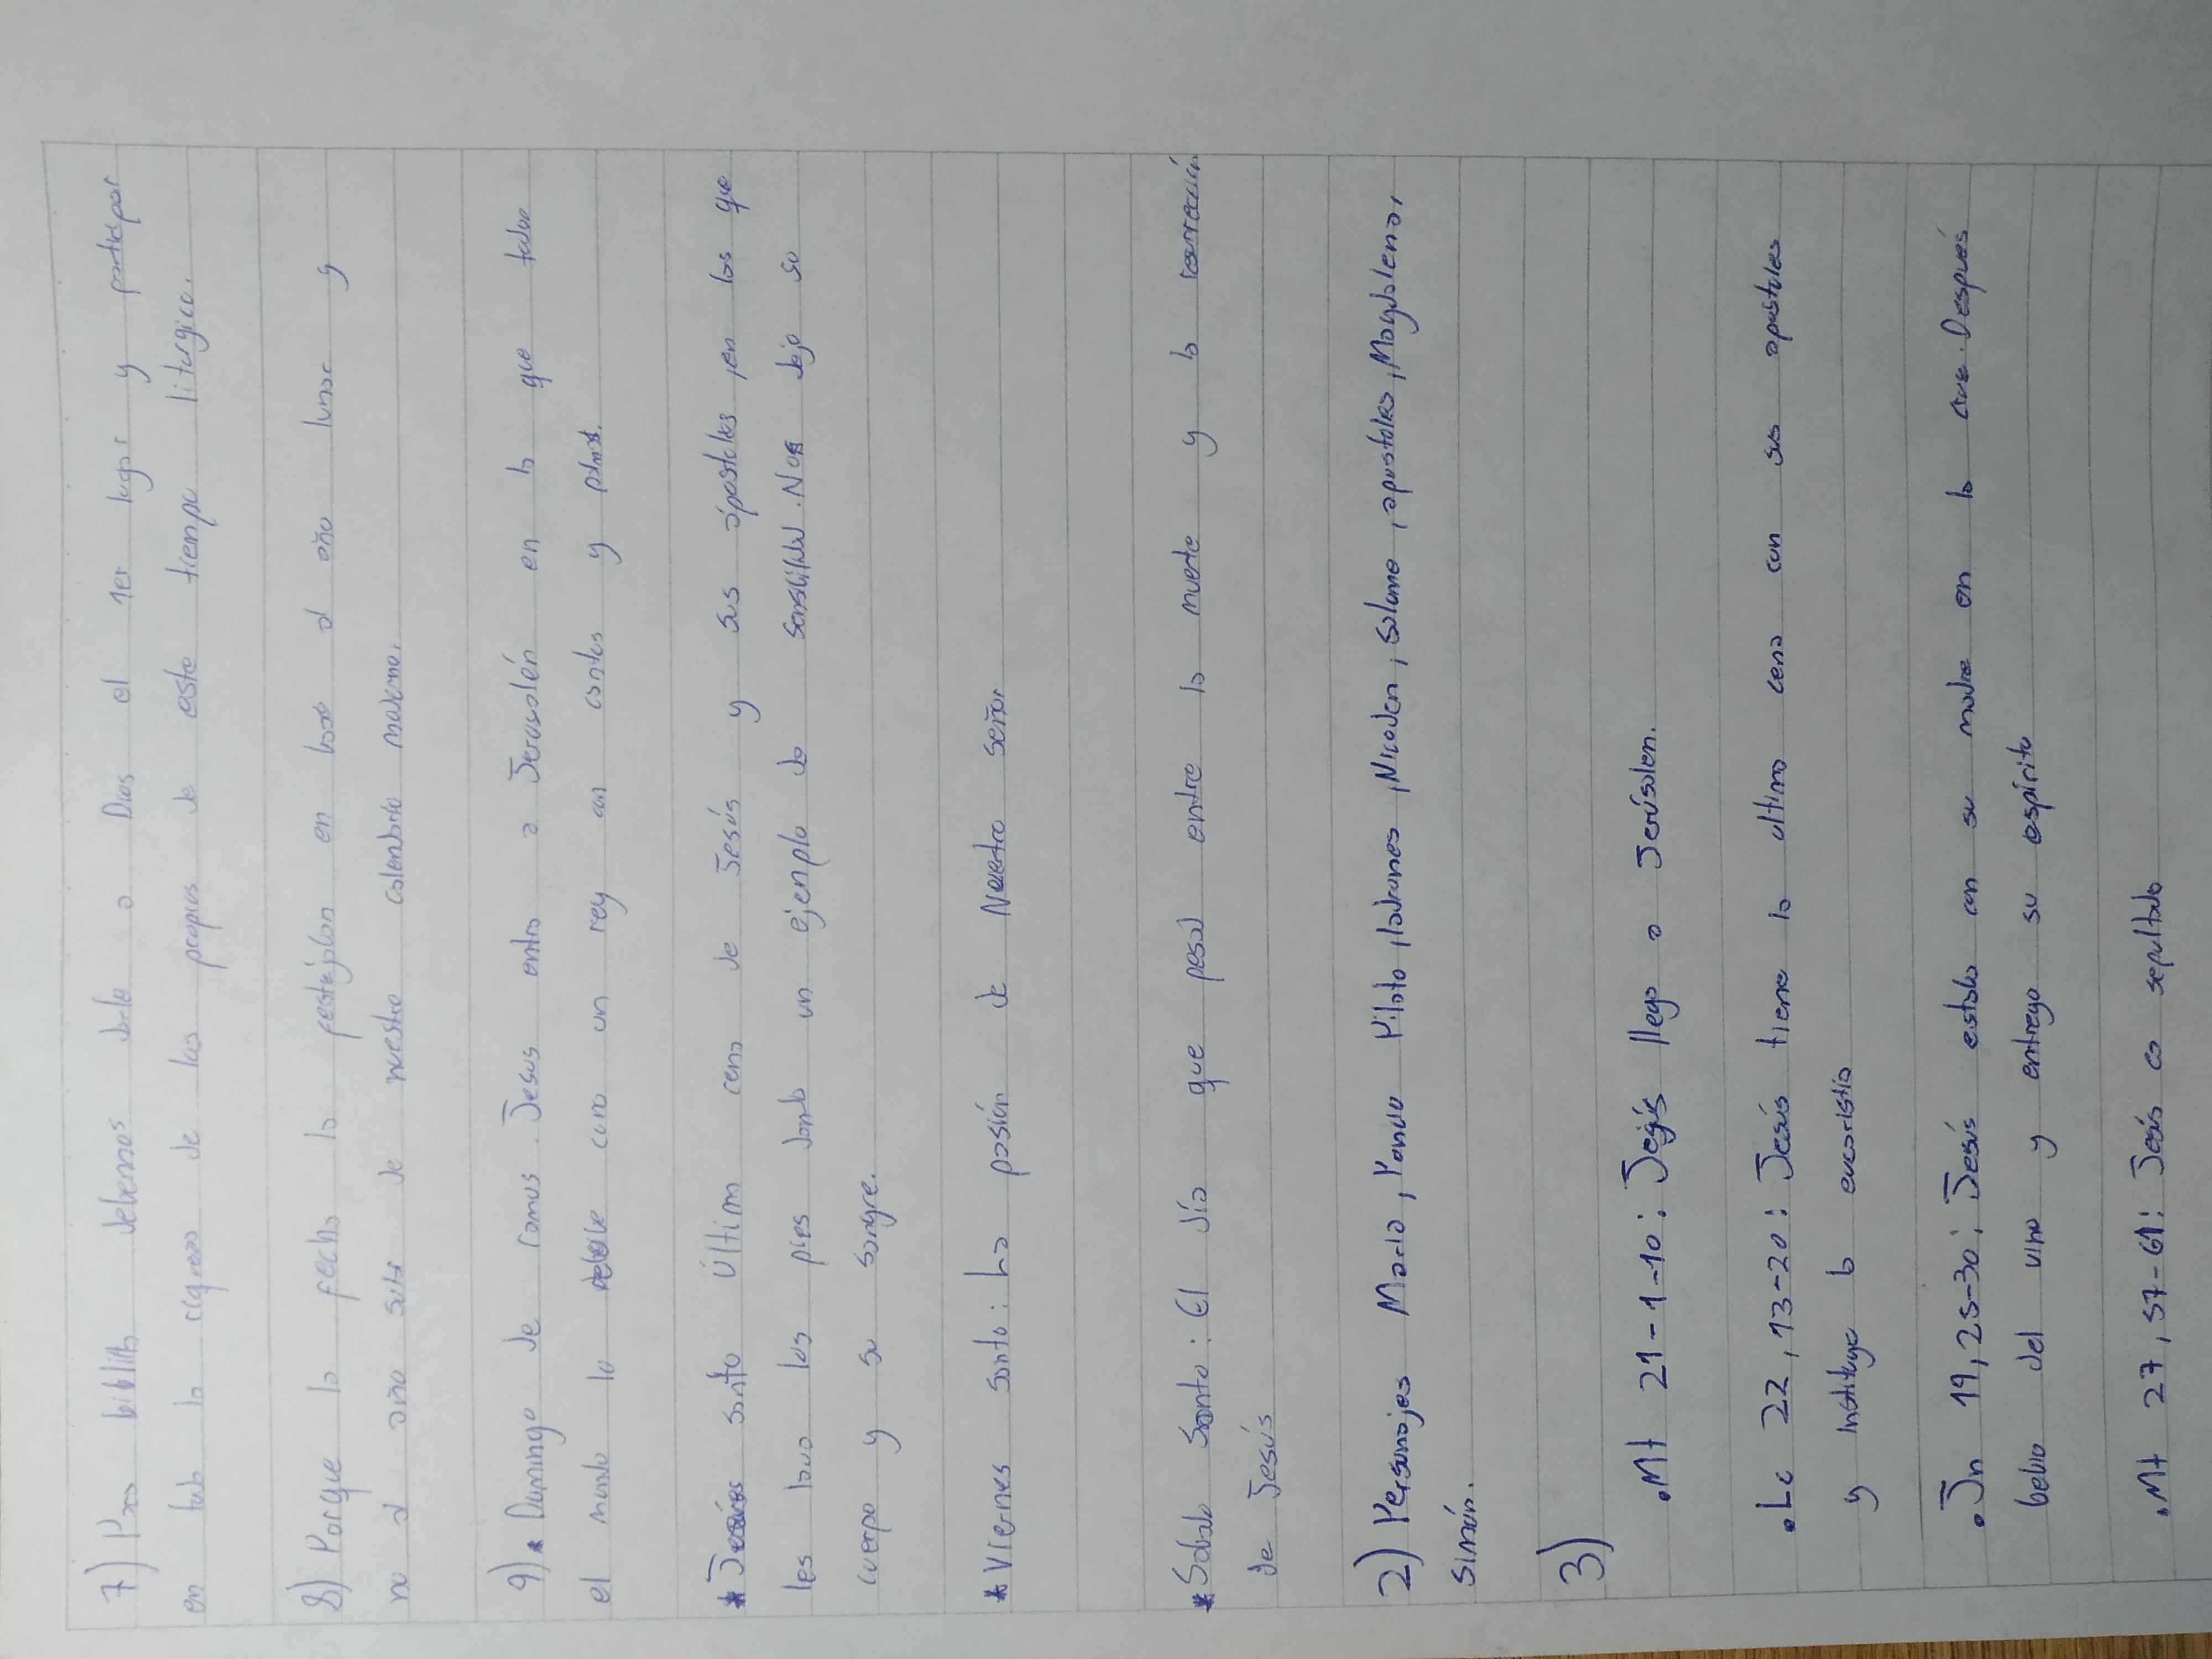 7) Para debemos darle a Dios el 1er lugar y participar
en todo lo de las propias de este tiempo liturgico.
8) Porque la fecha la en base al año lunar y
no al año solar de nuestro calendario moderno.
9) * Domingo de ramos. Jesus entra a Jerusalén en la que todo
el mundo lo recibe como un rey con cantos y palmas.
* Jueves santo Última cena de Jesús y sus apostoles, en los que
les lava los pies dando un ejemplo de sensillez. Nos dejo su
cuerpo y su sangre.
* Viernes santo: La pasión de Nuestro señor.
* Sabado Santo: El día que pasa entre la muerte y la resurrección
de Jesús
2) Personajes Maria, Poncio Pilato, ladrones, Nicoden, salome, apostoles, Magdalena,
simón.
3)
• Mt 21-1-10: Jesús llega a Jerúsalen.
• Lc 22, 13-20: Jesús tiene la ultima cena con sus apostoles
y instituye la eucaristía
• Jn 19, 25-30: Jesús estaba con su madre en la cruz. Después
bebio del vino y entrego su espíritu
• Mt 27, 57-61: Jesús es sepultado